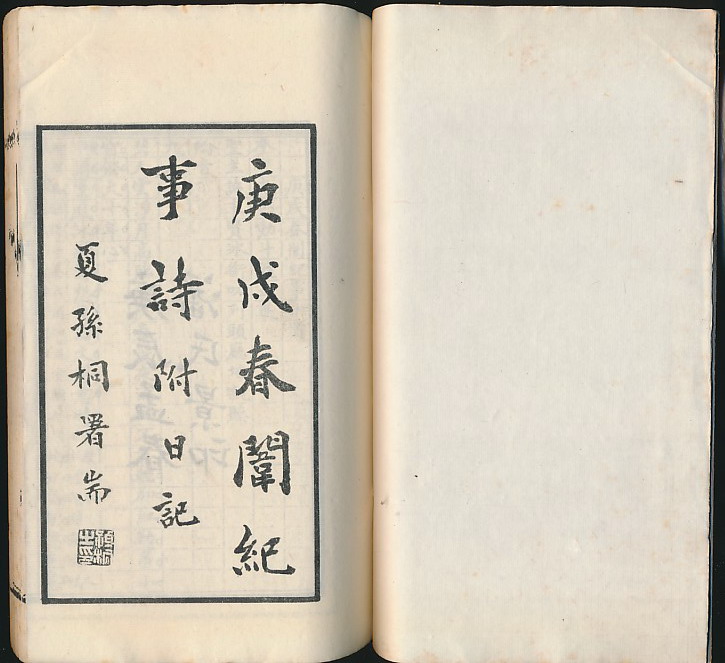 庚戌春闈紀
事詩附日記
夏孫桐署耑